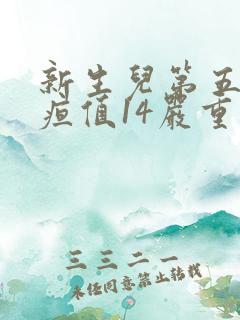 新生兒第五
疸值14嚴重
三三二一
未经同意禁止转载